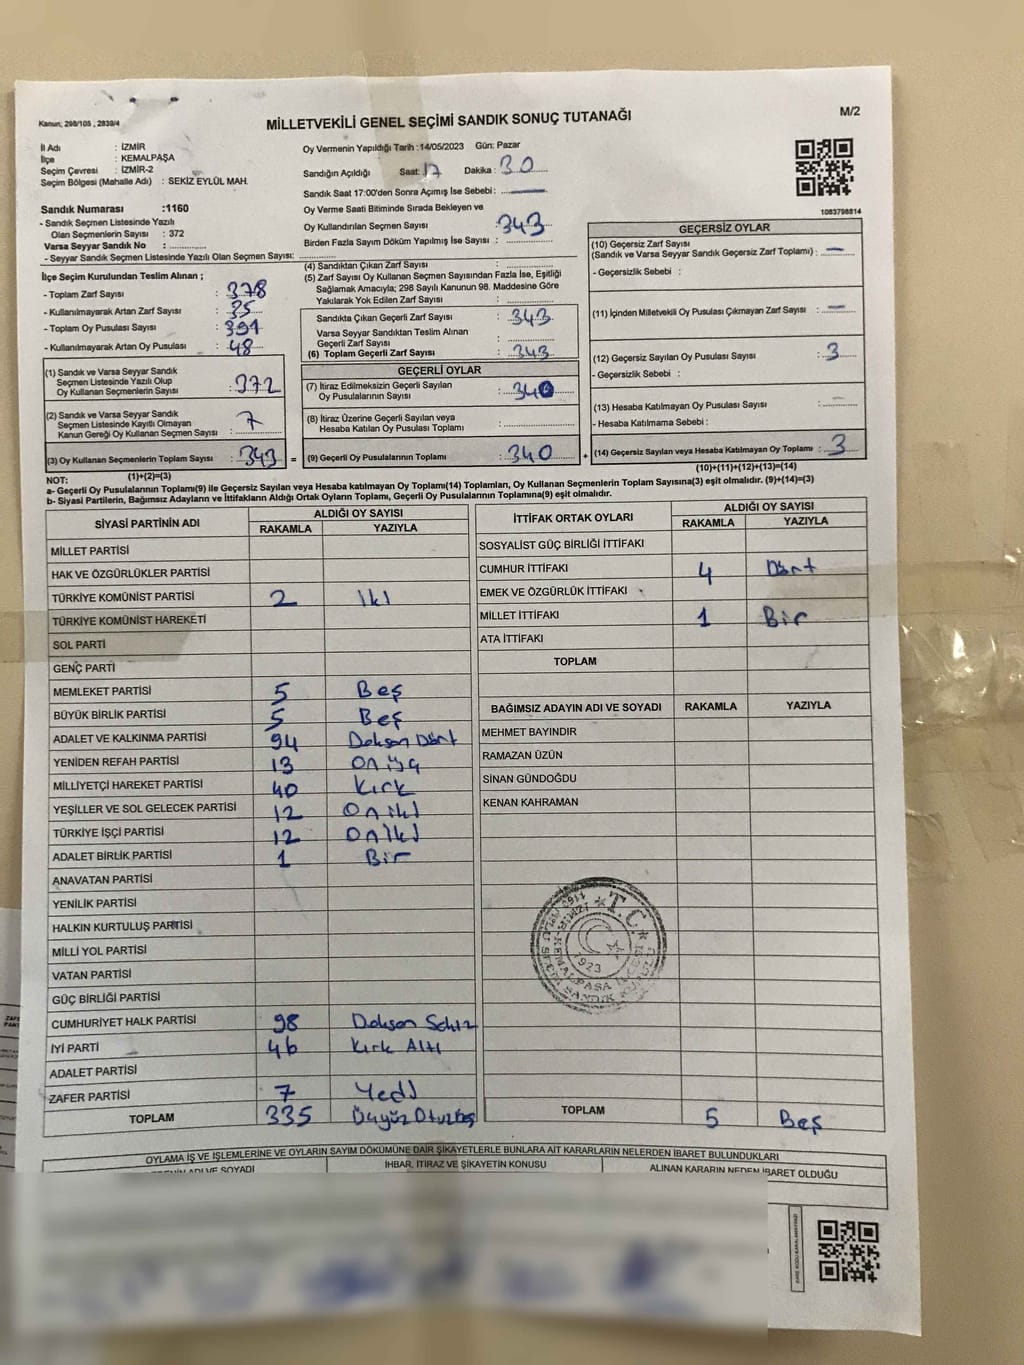 Kanun, 298/105 , 2839/4
MİLLETVEKİLİ GENEL SEÇİMİ SANDIK SONUÇ TUTANAĞI
M/2
İl Adı : İZMİR
İlçe : KEMALPAŞA
Seçim Çevresi : İZMİR-2
Seçim Bölgesi (Mahalle Adı) : SEKİZ EYLÜL MAH.
Sandık Numarası :1160
- Sandık Seçmen Listesinde Yazılı
Olan Seçmenlerin Sayısı : 372
Varsa Seyyar Sandık No :
- Seyyar Sandık Listesinde Yazılı Olan Seçmen Sayısı:
Oy Vermenin Yapıldığı Tarih :14/05/2023 Gün: Pazar
Sandığın Açıldığı Saat: 17 Dakika : 30
Sandık Saat 17:00'den Sonra Açımış İse Sebebi :
Oy Verme Saati Bitiminde Sırada Bekleyen ve
Oy Kullandırılan Seçmen Sayısı : 343
Birden Fazla Sayım Döküm Yapılmış İse Sayısı :
1083798814
İlçe Seçim Kurulundan Teslim Alınan ;
- Toplam Zarf Sayısı : 378
- Kullanılmayarak Artan Zarf Sayısı : 35
- Toplam Oy Pusulası Sayısı : 391
- Kullanılmayarak Artan Oy Pusulası : 48
(1) Sandık ve Varsa Seyyar Sandık
Seçmen Listesinde Yazılı Olup
Oy Kullanan Seçmenlerin Sayısı : 372
(2) Sandık ve Varsa Seyyar Sandık
Seçmen Listesinde Kayıtlı Olmayan
Kanun Gereği Oy Kullanan Seçmen Sayısı : 7
(3) Oy Kullanan Seçmenlerin Toplam Sayısı : 343 =
(1)+(2)=(3)
(4) Sandıktan Çıkan Zarf Sayısı :
(5) Zarf Sayısı Oy Kullanan Seçmen Sayısından Fazla İse, Eşitliği
Sağlamak Amacıyla; 298 Sayılı Kanunun 98. Maddesine Göre
Yakılarak Yok Edilen Zarf Sayısı :
Sandıkta Çıkan Geçerli Zarf Sayısı : 343
Varsa Seyyar Sandıktan Teslim Alınan
Geçerli Zarf Sayısı :
(6) Toplam Geçerli Zarf Sayısı : 343
GEÇERLİ OYLAR
(7) İtiraz Edilmeksizin Geçerli Sayılan
Oy Pusulalarının Sayısı : 340
(8) İtiraz Üzerine Geçerli Sayılan veya
Hesaba Katılan Oy Pusulası Toplamı :
(9) Geçerli Oy Pusulalarının Toplamı : 340 +
GEÇERSİZ OYLAR
(10) Geçersiz Zarf Sayısı
(Sandık ve Varsa Seyyar Sandık Geçersiz Zarf Toplamı) : —
- Geçersizlik Sebebi :
(11) İçinden Milletvekili Oy Pusulası Çıkmayan Zarf Sayısı : —
(12) Geçersiz Sayılan Oy Pusulası Sayısı : 3
- Geçersizlik Sebebi :
(13) Hesaba Katılmayan Oy Pusulası Sayısı : —
- Hesaba Katılmama Sebebi :
(14) Geçersiz Sayılan veya Hesaba Katılmayan Oy Toplamı : 3
(10)+(11)+(12)+(13)=(14)
NOT:
a- Geçerli Oy Pusulalarının Toplamı(9) ile Geçersiz Sayılan veya Hesaba katılmayan Oy Toplamı(14) Toplamları, Oy Kullanan Seçmenlerin Toplam Sayısına(3) eşit olmalıdır. (9)+(14)=(3)
b- Siyasi Partilerin, Bağımsız Adayların ve İttifakların Aldığı Ortak Oyların Toplamı, Geçerli Oy Pusulalarının Toplamına(9) eşit olmalıdır.
SİYASİ PARTİNİN ADI ALDIĞI OY SAYISI
RAKAMLA YAZIYLA
MİLLET PARTİSİ
HAK VE ÖZGÜRLÜKLER PARTİSİ
TÜRKİYE KOMÜNİST PARTİSİ 2 İki
TÜRKİYE KOMÜNİST HAREKETİ
SOL PARTİ
GENÇ PARTİ
MEMLEKET PARTİSİ 5 Beş
BÜYÜK BİRLİK PARTİSİ 5 Beş
ADALET VE KALKINMA PARTİSİ 94 Doksan Dört
YENİDEN REFAH PARTİSİ 13
MİLLİYETÇİ HAREKET PARTİSİ 40 Kırk
YEŞİLLER VE SOL GELECEK PARTİSİ 12 Oniki
TÜRKİYE İŞÇİ PARTİSİ 12 Oniki
ADALET BİRLİK PARTİSİ 1 Bir
ANAVATAN PARTİSİ
YENİLİK PARTİSİ
HALKIN KURTULUŞ PARTİSİ
MİLLİ YOL PARTİSİ
VATAN PARTİSİ
GÜÇ BİRLİĞİ PARTİSİ
CUMHURİYET HALK PARTİSİ 98 Doksan Sekiz
İYİ PARTİ 46 Kırk Altı
ADALET PARTİSİ
ZAFER PARTİSİ 7 Yedi
TOPLAM 335 Üçyüz Otuzbeş
İTTİFAK ORTAK OYLARI ALDIĞI OY SAYISI
RAKAMLA YAZIYLA
SOSYALİST GÜÇ BİRLİĞİ İTTİFAKI
CUMHUR İTTİFAKI 4 Dört
EMEK VE ÖZGÜRLÜK İTTİFAKI
MİLLET İTTİFAKI 1 Bir
ATA İTTİFAKI
TOPLAM
BAĞIMSIZ ADAYIN ADI VE SOYADI RAKAMLA YAZIYLA
MEHMET BAYINDIR
RAMAZAN ÜZÜN
SİNAN GÜNDOĞDU
KENAN KAHRAMAN
T.C.
1923
TOPLAM 5 Beş
OYLAMA İŞ VE İŞLEMLERİNE VE OYLARIN SAYIM DÖKÜMÜNE DAİR ŞİKAYETLERLE BUNLARA AİT KARARLARIN NELERDEN İBARET BULUNDUKLARI
ADI VE SOYADI İHBAR, İTİRAZ VE ŞİKAYETİN KONUSU ALINAN KARARIN NEDEN İBARET OLDUĞU